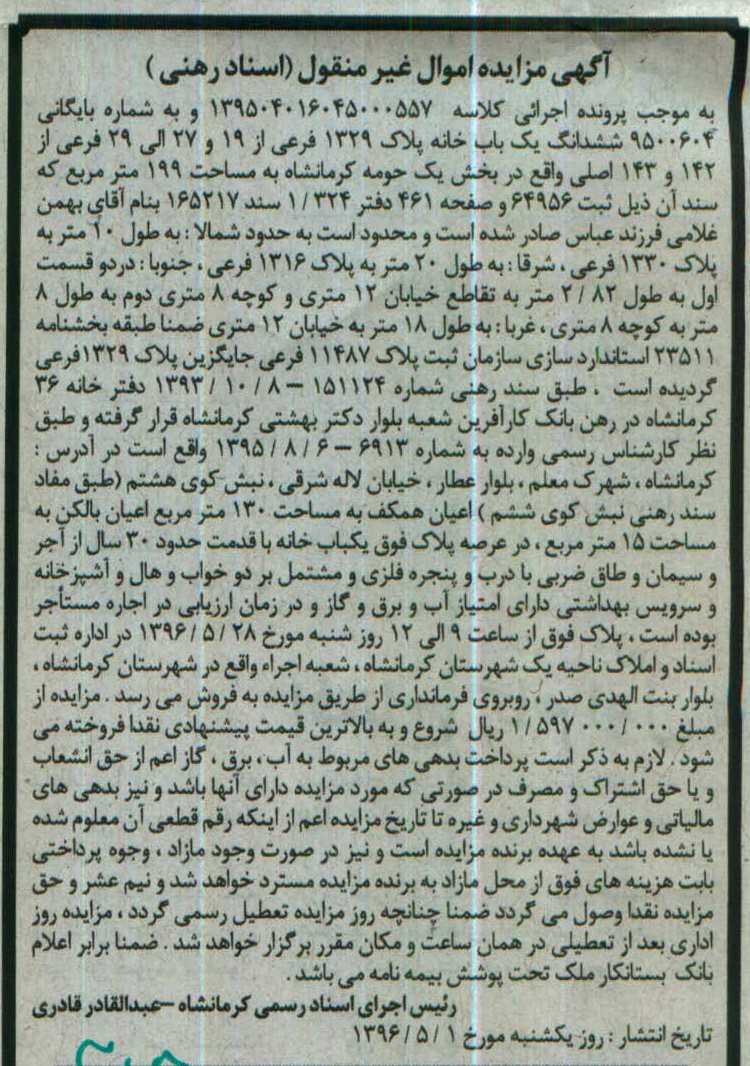 آگهی مزایده اموال غیر منقول (اسناد رهنی)
به موجب پرونده اجرائی کلاسه ۱۳۹۵۰۴۰۱۶۰۴۵۰۰۰۵۵۷ و به شماره بایگانی
۹۵۰۰۶۰۴ ششدانگ یک باب خانه پلاک ۱۳۲۹ فرعی از ۱۹ و ۲۷ الی ۲۹ فرعی از
۱۴۲ و ۱۴۳ اصلی واقع در بخش یک حومه کرمانشاه به مساحت ۱۹۹ متر مربع که
سند آن ذیل ثبت ۶۴۹۵۶ و صفحه ۴۶۱ دفتر ۳۲۴ / ۱ سند ۱۶۵۲۱۷ بنام آقای بهمن
غلامی فرزند عباس صادر شده است و محدود است به حدود شمالا : به طول ۱۰ متر به
پلاک ۱۳۳۰ فرعی ، شرقا : به طول ۲۰ متر به پلاک ۱۳۱۶ فرعی ، جنوبا : دردو قسمت
اول به طول ۸۲ / ۲ متر به تقاطع خیابان ۱۲ متری و کوچه ۸ متری دوم به طول ۸
متر به کوچه ۸ متری ، غربا : به طول ۱۸ متر به خیابان ۱۲ متری ضمنا طبقه بخشنامه
۲۳۵۱۱ استاندارد سازی سازمان ثبت پلاک ۱۱۴۸۷ فرعی جایگزین پلاک ۱۳۲۹فرعی
گردیده است ، طبق سند رهنی شماره ۱۵۱۱۲۴ – ۸ / ۱۰ / ۱۳۹۳ دفتر خانه ۳۶
کرمانشاه در رهن بانک کارآفرین شعبه بلوار دکتر بهشتی کرمانشاه قرار گرفته و طبق
نظر کارشناس رسمی وارده به شماره ۶۹۱۳ – ۶ / ۸ / ۱۳۹۵ واقع است در آدرس :
کرمانشاه ، شهرک معلم ، بلوار عطار ، خیابان لاله شرقی ، نبش کوی هشتم (طبق مفاد
سند رهنی نبش کوی ششم ) اعیان همکف به مساحت ۱۳۰ متر مربع اعیان بالکن به
مساحت ۱۵ متر مربع ، در عرصه پلاک فوق یکباب خانه با قدمت حدود ۳۰ سال از آجر
و سیمان و طاق ضربی با درب و پنجره فلزی و مشتمل بر دو خواب و هال و آشپزخانه
و سرویس بهداشتی دارای امتیاز آب و برق و گاز و در زمان ارزیابی در اجاره مستأجر
بوده است ، پلاک فوق از ساعت ۹ الی ۱۲ روز شنبه مورخ ۲۸ / ۵ / ۱۳۹۶ در اداره ثبت
اسناد و املاک ناحیه یک شهرستان کرمانشاه ، شعبه اجراء واقع در شهرستان کرمانشاه ،
بلوار بنت الهدی صدر ، روبروی فرمانداری از طریق مزایده به فروش می رسد . مزایده از
مبلغ ۰۰۰ / ۰۰۰ ۵۹۷ / ۱ ریال شروع و به بالاترین قیمت پیشنهادی نقدا فروخته می
شود . لازم به ذکر است پرداخت بدهی های مربوط به آب ، برق ، گاز اعم از حق انشعاب
و یا حق اشتراک و مصرف در صورتی که مورد مزایده دارای آنها باشد و نیز بدهی های
مالیاتی و عوارض شهرداری و غیره تا تاریخ مزایده اعم از اینکه رقم قطعی آن معلوم شده
یا نشده باشد به عهده برنده مزایده است و نیز در صورت وجود مازاد ، وجوه پرداختی
بابت هزینه های فوق از محل مازاد به برنده مزایده مسترد خواهد شد و نیم عشر و حق
مزایده نقدا وصول می گردد ضمنا چنانچه روز مزایده تعطیل رسمی گردد ، مزایده روز
اداری بعد از تعطیلی در همان ساعت و مکان مقرر برگزار خواهد شد . ضمنا برابر اعلام
بانک بستانکار ملک تحت پوشش بیمه نامه می باشد .
رئیس اجرای اسناد رسمی کرمانشاه –عبدالقادر قادری
تاریخ انتشار : روز یکشنبه مورخ ۱ / ۵ / ۱۳۹۶